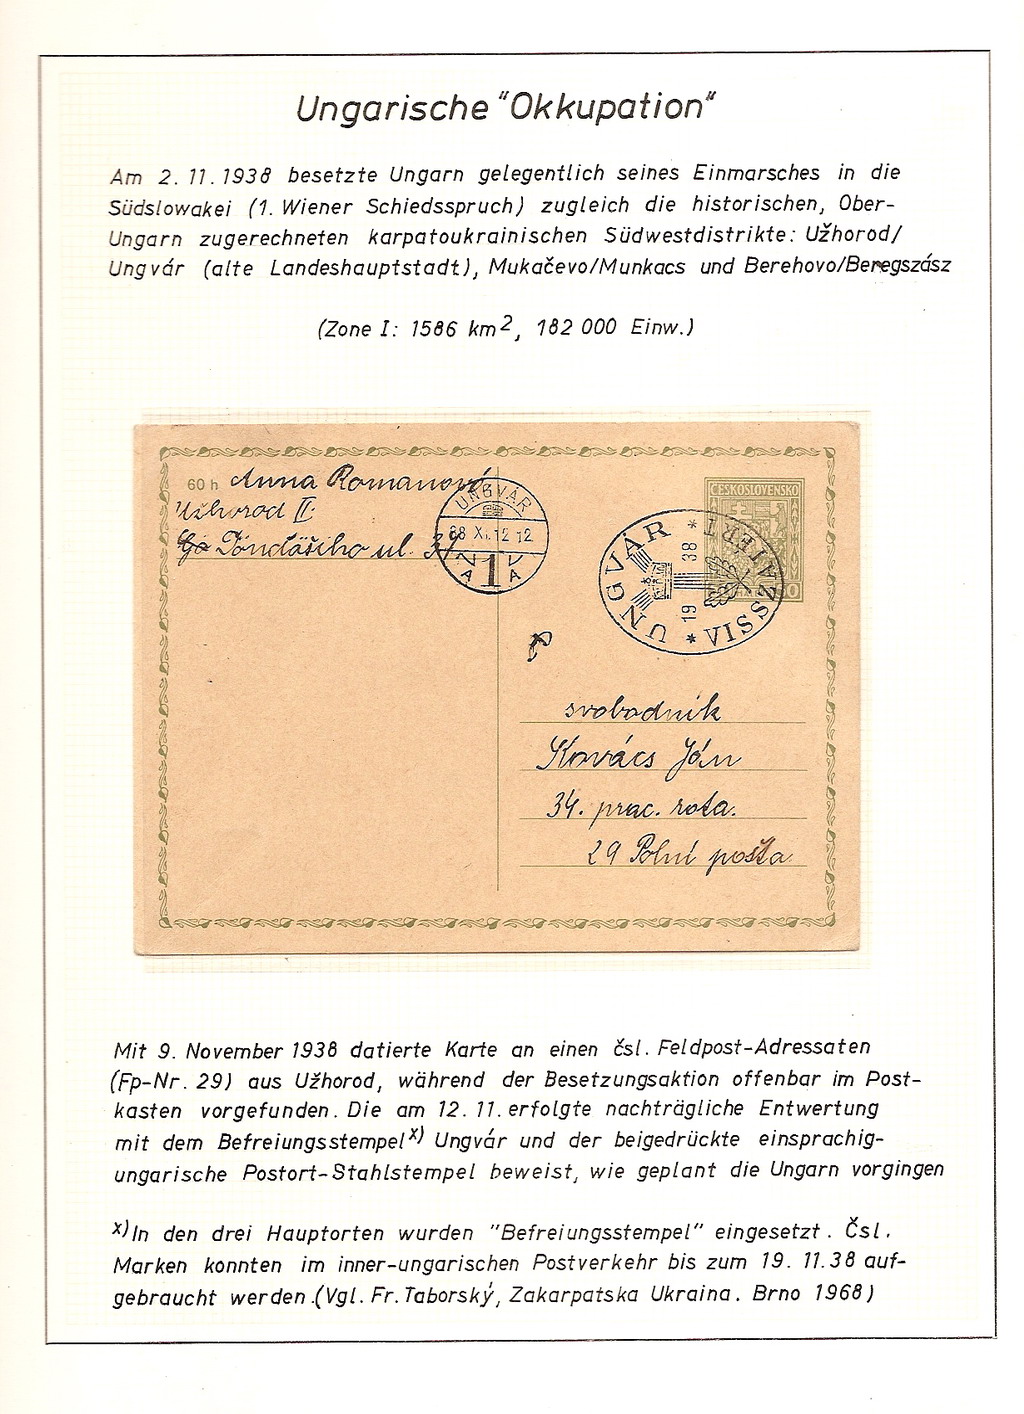 Ungarische "Okkupation"
Am 2. 11. 1938 besetzte Ungarn gelegentlich seines Einmarsches in die
Südslowakei (1. Wiener Schiedsspruch) zugleich die historischen, Ober-
Ungarn zugerechneten karpatoukrainischen Südwestdistrikte: Užhorod/
Ungvár (alte Landeshauptstadt), Mukačevo/Munkacs und Berehovo/Beregszász
(Zone I: 1586 km², 182 000 Einw.)
60 h Anna Romanová
Užhorod II.
ul. 34
UNGVÁR
38 XI. 12 12
1
A A
ČESKOSLOVENSKO
UNGVÁR * VISSZATÉRT *
19 38
svobodník
Kovács Ján
34. prac. rota.
29 Polní pošta
Mit 9. November 1938 datierte Karte an einen čsl. Feldpost-Adressaten
(Fp-Nr. 29) aus Užhorod, während der Besetzungsaktion offenbar im Post-
kasten vorgefunden. Die am 12. 11. erfolgte nachträgliche Entwertung
mit dem Befreiungsstempel x) Ungvár und der beigedrückte einsprachig-
ungarische Postort-Stahlstempel beweist, wie geplant die Ungarn vorgingen
x) In den drei Hauptorten wurden "Befreiungsstempel" eingesetzt. Čsl.
Marken konnten im inner-ungarischen Postverkehr bis zum 19. 11.38 auf-
gebraucht werden.(Vgl. Fr. Taborský, Zakarpatska Ukraina. Brno 1968)